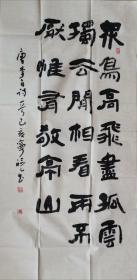 眾鳥高飛盡孤雲
獨去閒相看兩不
厭惟有敬亭山
唐李白詩